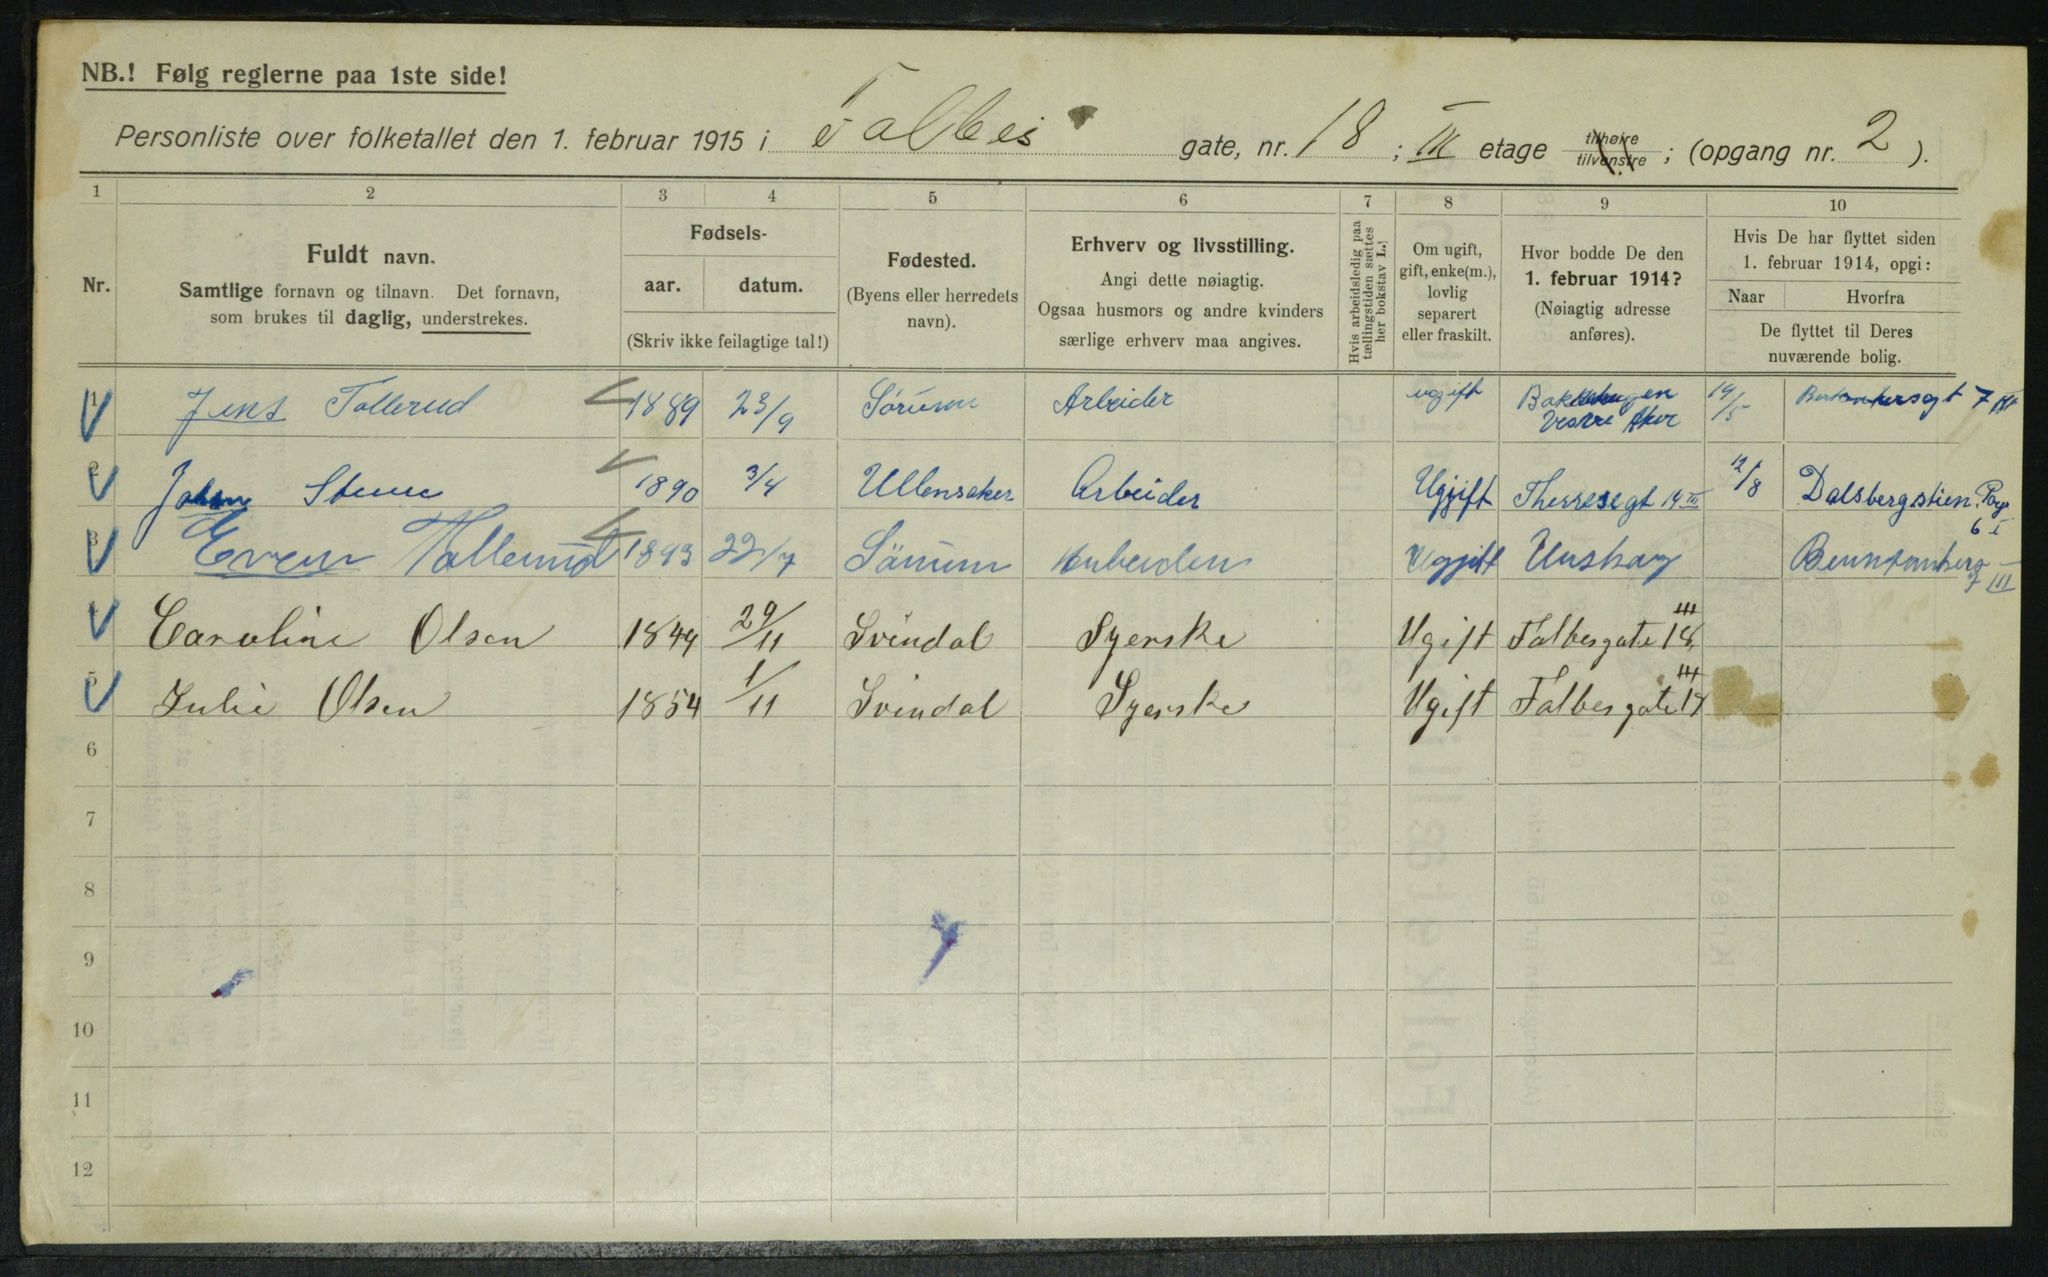 NB.! Følg reglerne paa 1ste side!
Personliste over folketallet den 1. februar 1915 i Falbes gate, nr. 18 ; III etage tilhøire tilvenstre ; (opgang nr. 2 ).
1 2 3 4 5 6 7 8 9 10
Nr.
Fuldt navn.
Samtlige fornavn og tilnavn. Det fornavn,
som brukes til daglig, understrekes.
Fødsels-
aar. datum.
(Skriv ikke feilagtige tal!)
Fødested.
(Byens eller herredets
navn).
Erhverv og livsstilling.
Angi dette nøiagtig.
Ogsaa husmors og andre kvinders
særlige erhverv maa angives.
Hvis arbeidsledig paa
tællingstiden sættes
her bokstav L.)
Om ugift,
gift, enke(m.),
lovlig
separert
eller fraskilt.
Hvor bodde De den
1. februar 1914?
(Nøiagtig adresse
anføres).
Hvis De har flyttet siden
1. februar 1914, opgi:
Naar Hvorfra
De flyttet til Deres
nuværende bolig.
1 Jens Tollerud 1889 23/9 Sørum Arbeider ugift Vestre Aker 14/5 7 III
2 Johan 1890 3/4 Ullensaker Arbeider Ugjift Therresegt 14 III 12/8 Dalsbergstien
6 I
3 Even Tollerud 1893 22/7 Sörum Ugjift
7 III
4 Caroline Olsen 1849 29/11 Svindal Syerske Ugift Falbesgate 18 III
5 Julie Olsen 1854 1/11 Svindal Syerske Ugift Falbesgate 18 III
6
7
8
9
10
11
12